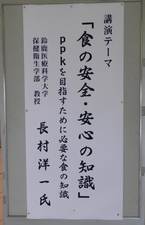 講演テーマ
「食の安全・安心の知識」
ppkを目指すために必要な食の知識
鈴鹿医療科学大学
保健衛生学部 教授
長村洋一氏